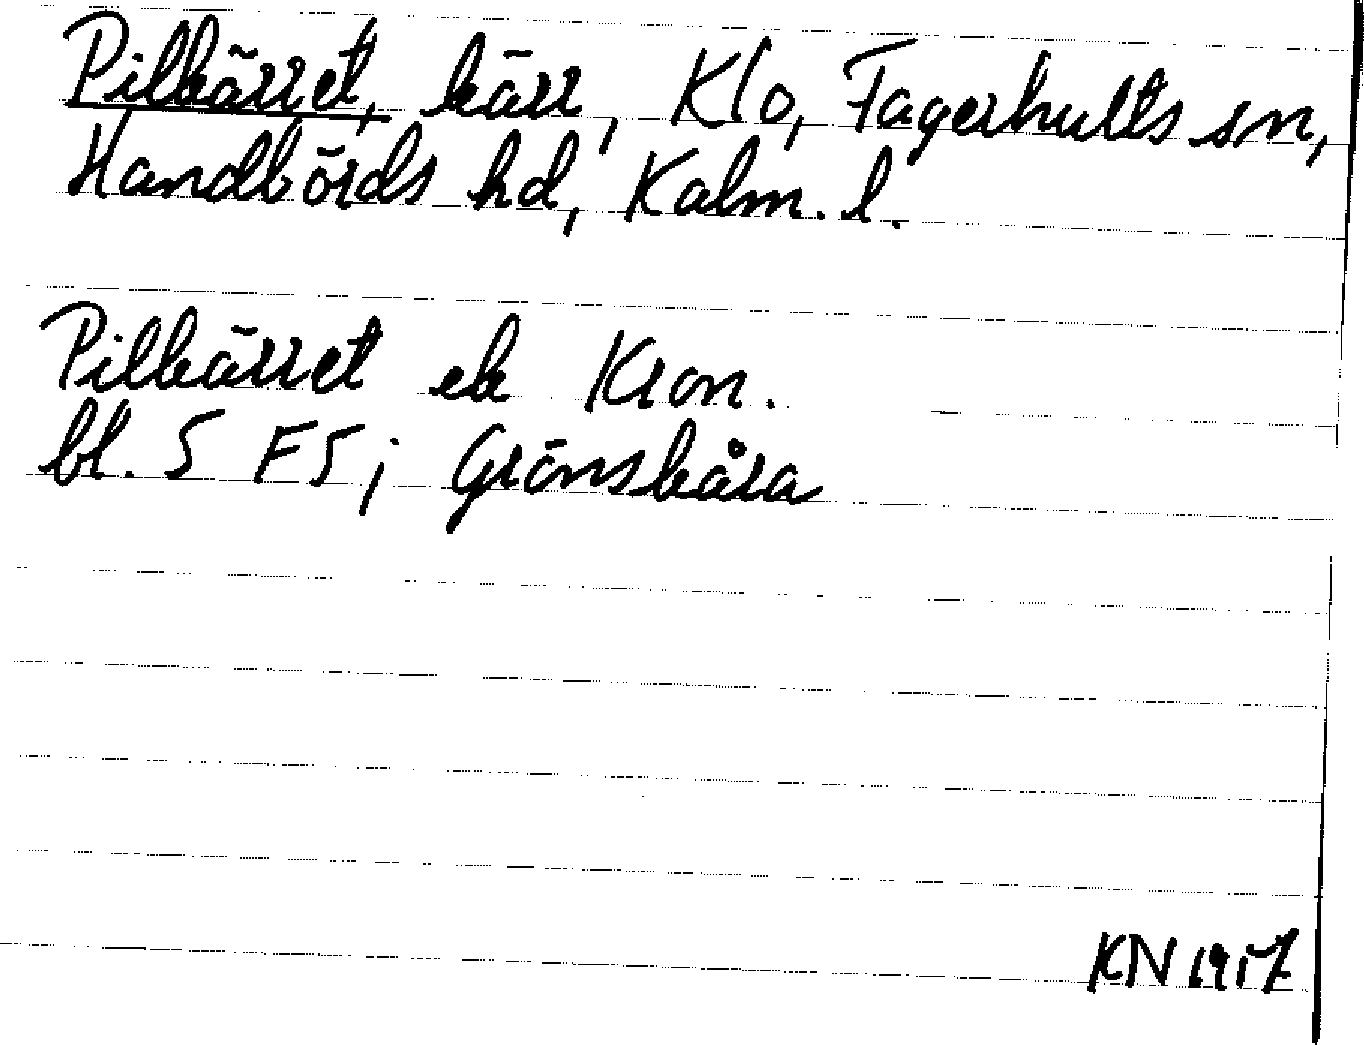 Pilkärret, kärr, Klo, Fagerhults sn,
Handbörds hd, Kalm. l.
Pilkärret ek Kron.
bl. 5 F5; Grönskåra
KN 1957